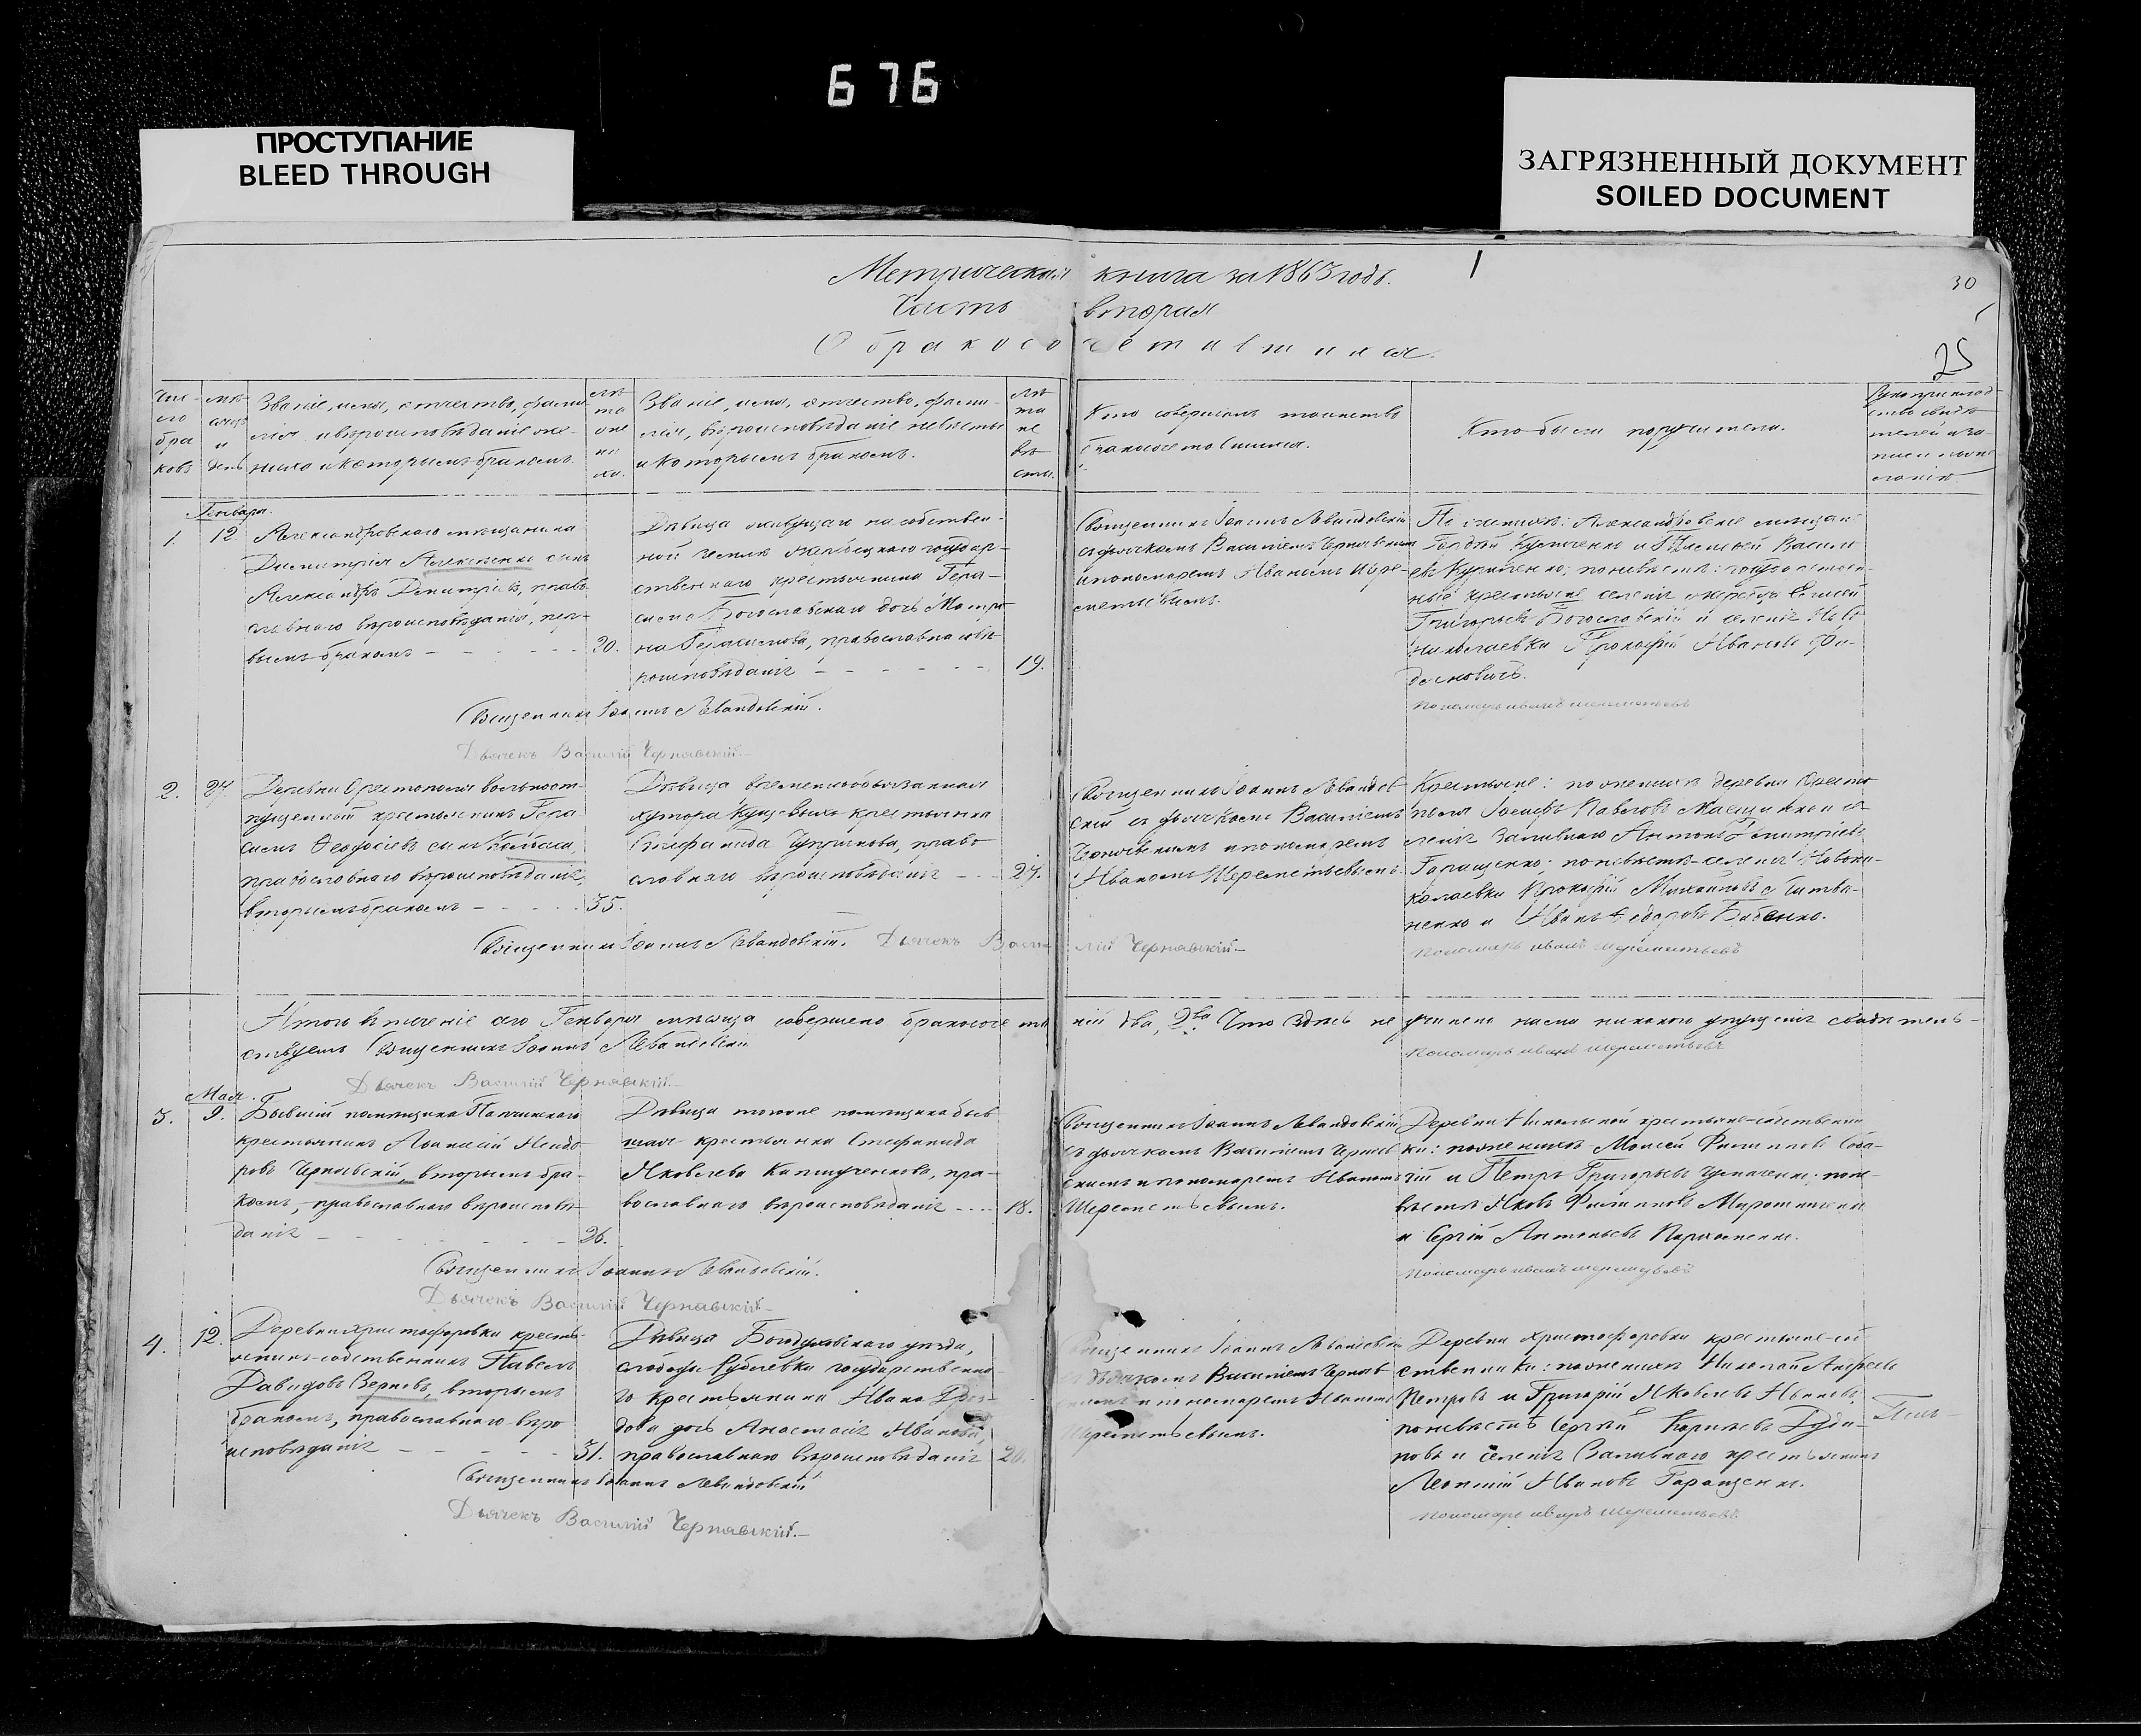 676
ПРОСТУПАНИЕ
BLEED THROUGH
ЗАГРЯЗНЕННЫЙ ДОКУМЕНТ
SOILED DOCUMENT
30
25
Метрическая книга за 1863 годъ.
Часть вторая
О бракосочетавшихся.
Чи-
сло
бра
ковъ
мѣ-
сяцъ
и
день
Званіе, имя, отчество, фами-
лія и вѣроисповѣданіе же-
ниха и которымъ бракомъ.
лѣ
та
же
ни
ха.
Званіе, имя, отчество, фами-
лія, вѣроисповѣданіе невѣсты
и которымъ бракомъ.
лѣ
та
не
вѣ
сты.
Кто совершалъ таинство
бракосочетанія.
Кто были поручители.
Генваря.
1. 12. Александровскаго мѣщанина
Димитрія Алексѣенко сынъ
Александръ Димитріевъ, право
славнаго вѣроисповѣданія, пер-
вымъ бракомъ 20.
Дѣвица живущаго на собствен-
ной землѣ государ-
ственнаго крестьянина Гера-
сима Богославскаго дочь Матро
на Герасимова, православнаго вѣ
роисповѣданія 19.
Священникъ Іоаннъ Левандовскій
съ дьячкомъ Василіемъ Чернявскимъ
и пономаремъ Иваномъ Шере-
метьевымъ.
По женихѣ: Александровскіе мѣщане
Гордій и Василь
евъ по невѣстѣ: государствен-
ные крестьяне селенія
Григорьевъ Богославскій и селенія Ново
николаевки Прокофій Ивановъ
Священникъ Іоаннъ Левандовскій.
Пономарь иванъ шереметьевъ
Дьячекъ Василій Чернявскій.
2. 27. Деревни Орестополя вольноот-
пущенный крестьянинъ Гера
симъ Феодосіевъ сынъ
православнаго вѣроисповѣданія,
вторымъ бракомъ 35.
Дѣвица временнообязанная
хутора крестьянка
православнаго вѣроисповѣданія 27.
Священникъ Іоаннъ Левандов
скій съ дьячкомъ Василіемъ
Чернявскимъ и пономаремъ
Иваномъ Шереметьевымъ.
Крестьяне: по женихѣ деревни Оресто
поля Іосифъ Павловъ и се
ленія Заливнаго Антонъ Димитріевъ
Гаращенко; по невѣстѣ селенія Новони-
колаевки Прокофій Михайловъ Литви-
ненко и Иванъ Федоровъ Бабенко.
Священникъ Іоаннъ Левандовскій. Дьячекъ Василій Чернявскій.
пономарь иванъ шереметьевъ
Итого въ теченіе сего Генваря мѣсяца совершено бракосочетаній два, 2ва. Что здѣсь не учинено нами никакого упущенія свидѣтель-
ствуемъ Священникъ Іоаннъ Левандовскій
Пономарь иванъ шереметьевъ
Дьячекъ Василій Чернявскій.
Мая.
3. 9. Бывшій помѣщика
крестьянинъ
ровъ Чернявскій, вторымъ бра-
комъ, православнаго вѣроисповѣ
данія 26.
Дѣвица того же помѣщика быв
шая крестьянка Стефанида
Яковлева пра-
вославнаго вѣроисповѣданія 18.
Священникъ Іоаннъ Левандовскій
съ дьячкомъ Василіемъ Чернявс
скимъ и пономаремъ Иваномъ
Шереметьевымъ.
Деревни Никольской крестьяне-собственни
ки: по женихѣ Моисей Филиповъ Соба-
чій и Петръ Григорьевъ по не-
вѣстѣ Яковъ Филиповъ Мирошниченко
и Сергій Антоньевъ Пархоменко.
Священникъ Іоаннъ Левандовскій.
пономарь иванъ шереметьевъ
Дьячекъ Василій Чернявскій.
4. 12. Деревни Христофоровки кресть-
янинъ-собственникъ Павелъ
Давидовъ Зерновъ, вторымъ
бракомъ, православнаго вѣро
исповѣданія 31.
Дѣвица Богодуховскаго уѣзда,
слободы Рублевки государственна
го крестьянина Ивана
дочь Анастасія Иванова,
православнаго вѣроисповѣданія 20.
Священникъ Іоаннъ Левандовскій
съ дьячкомъ Василіемъ Чернявс
скимъ и пономаремъ Иваномъ
Шереметьевымъ.
Деревни Христофоровки крестьяне-соб
ственники: по женихѣ Николай Андреевъ
Петровъ и Григорій Яковлевъ Ивановъ,
по невѣстѣ Сергѣй
и селенія Заливнаго крестьянинъ
Леонтій Ивановъ Гаращенко.
Священникъ Іоаннъ Левандовскій
пономарь иванъ шереметьевъ
Дьячекъ Василій Чернявскій.